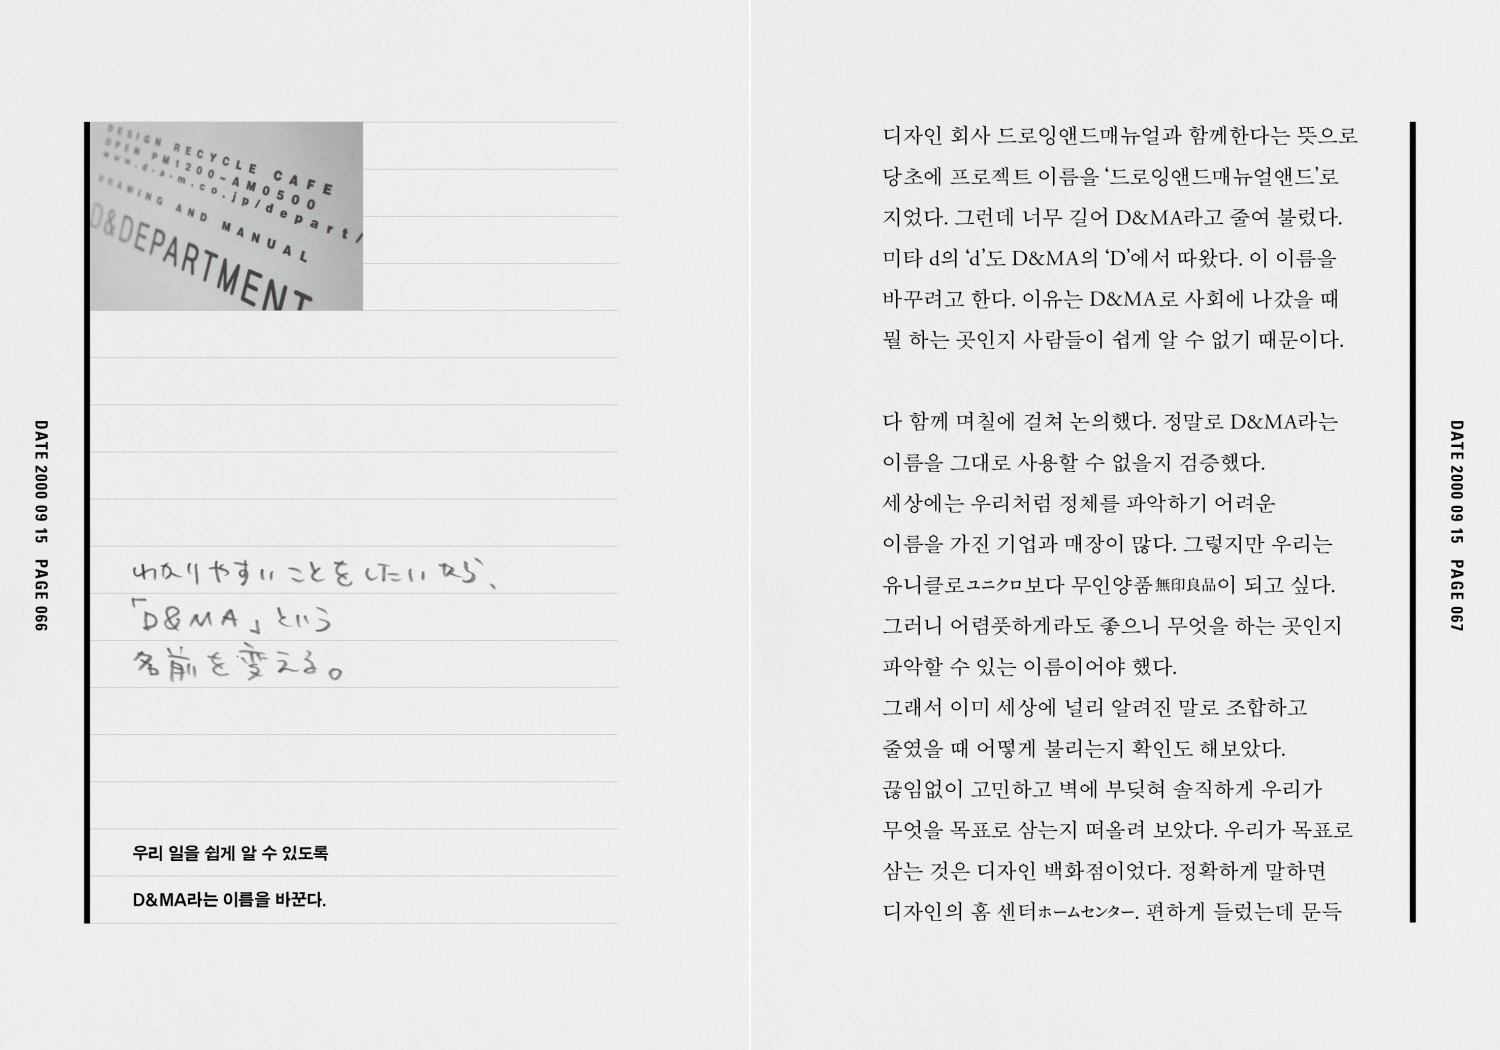 DESIGN RECYCLE CAFE
OPEN PM1200~AM0500
www.d-a-m.co.jp/depart/
DRAWING AND MANUAL
D&DEPARTMENT
DATE 2000 09 15 PAGE 066
わかりやすいことをしたいなら、
「D&MA」という
名前を変える。
우리 일을 쉽게 알 수 있도록
D&MA라는 이름을 바꾼다.
디자인 회사 드로잉앤드매뉴얼과 함께한다는 뜻으로
당초에 프로젝트 이름을 ‘드로잉앤드매뉴얼앤드’로
지었다. 그런데 너무 길어 D&MA라고 줄여 불렀다.
미타 d의 ‘d’도 D&MA의 ‘D’에서 따왔다. 이 이름을
바꾸려고 한다. 이유는 D&MA로 사회에 나갔을 때
뭘 하는 곳인지 사람들이 쉽게 알 수 없기 때문이다.
다 함께 며칠에 걸쳐 논의했다. 정말로 D&MA라는
이름을 그대로 사용할 수 없을지 검증했다.
세상에는 우리처럼 정체를 파악하기 어려운
이름을 가진 기업과 매장이 많다. 그렇지만 우리는
유니클로ユニクロ보다 무인양품無印良品이 되고 싶다.
그러니 어렴풋하게라도 좋으니 무엇을 하는 곳인지
파악할 수 있는 이름이어야 했다.
그래서 이미 세상에 널리 알려진 말로 조합하고
줄였을 때 어떻게 불리는지 확인도 해보았다.
끊임없이 고민하고 벽에 부딪혀 솔직하게 우리가
무엇을 목표로 삼는지 떠올려 보았다. 우리가 목표로
삼는 것은 디자인 백화점이었다. 정확하게 말하면
디자인의 홈 센터ホームセンター. 편하게 들렀는데 문득
DATE 2000 09 15 PAGE 067